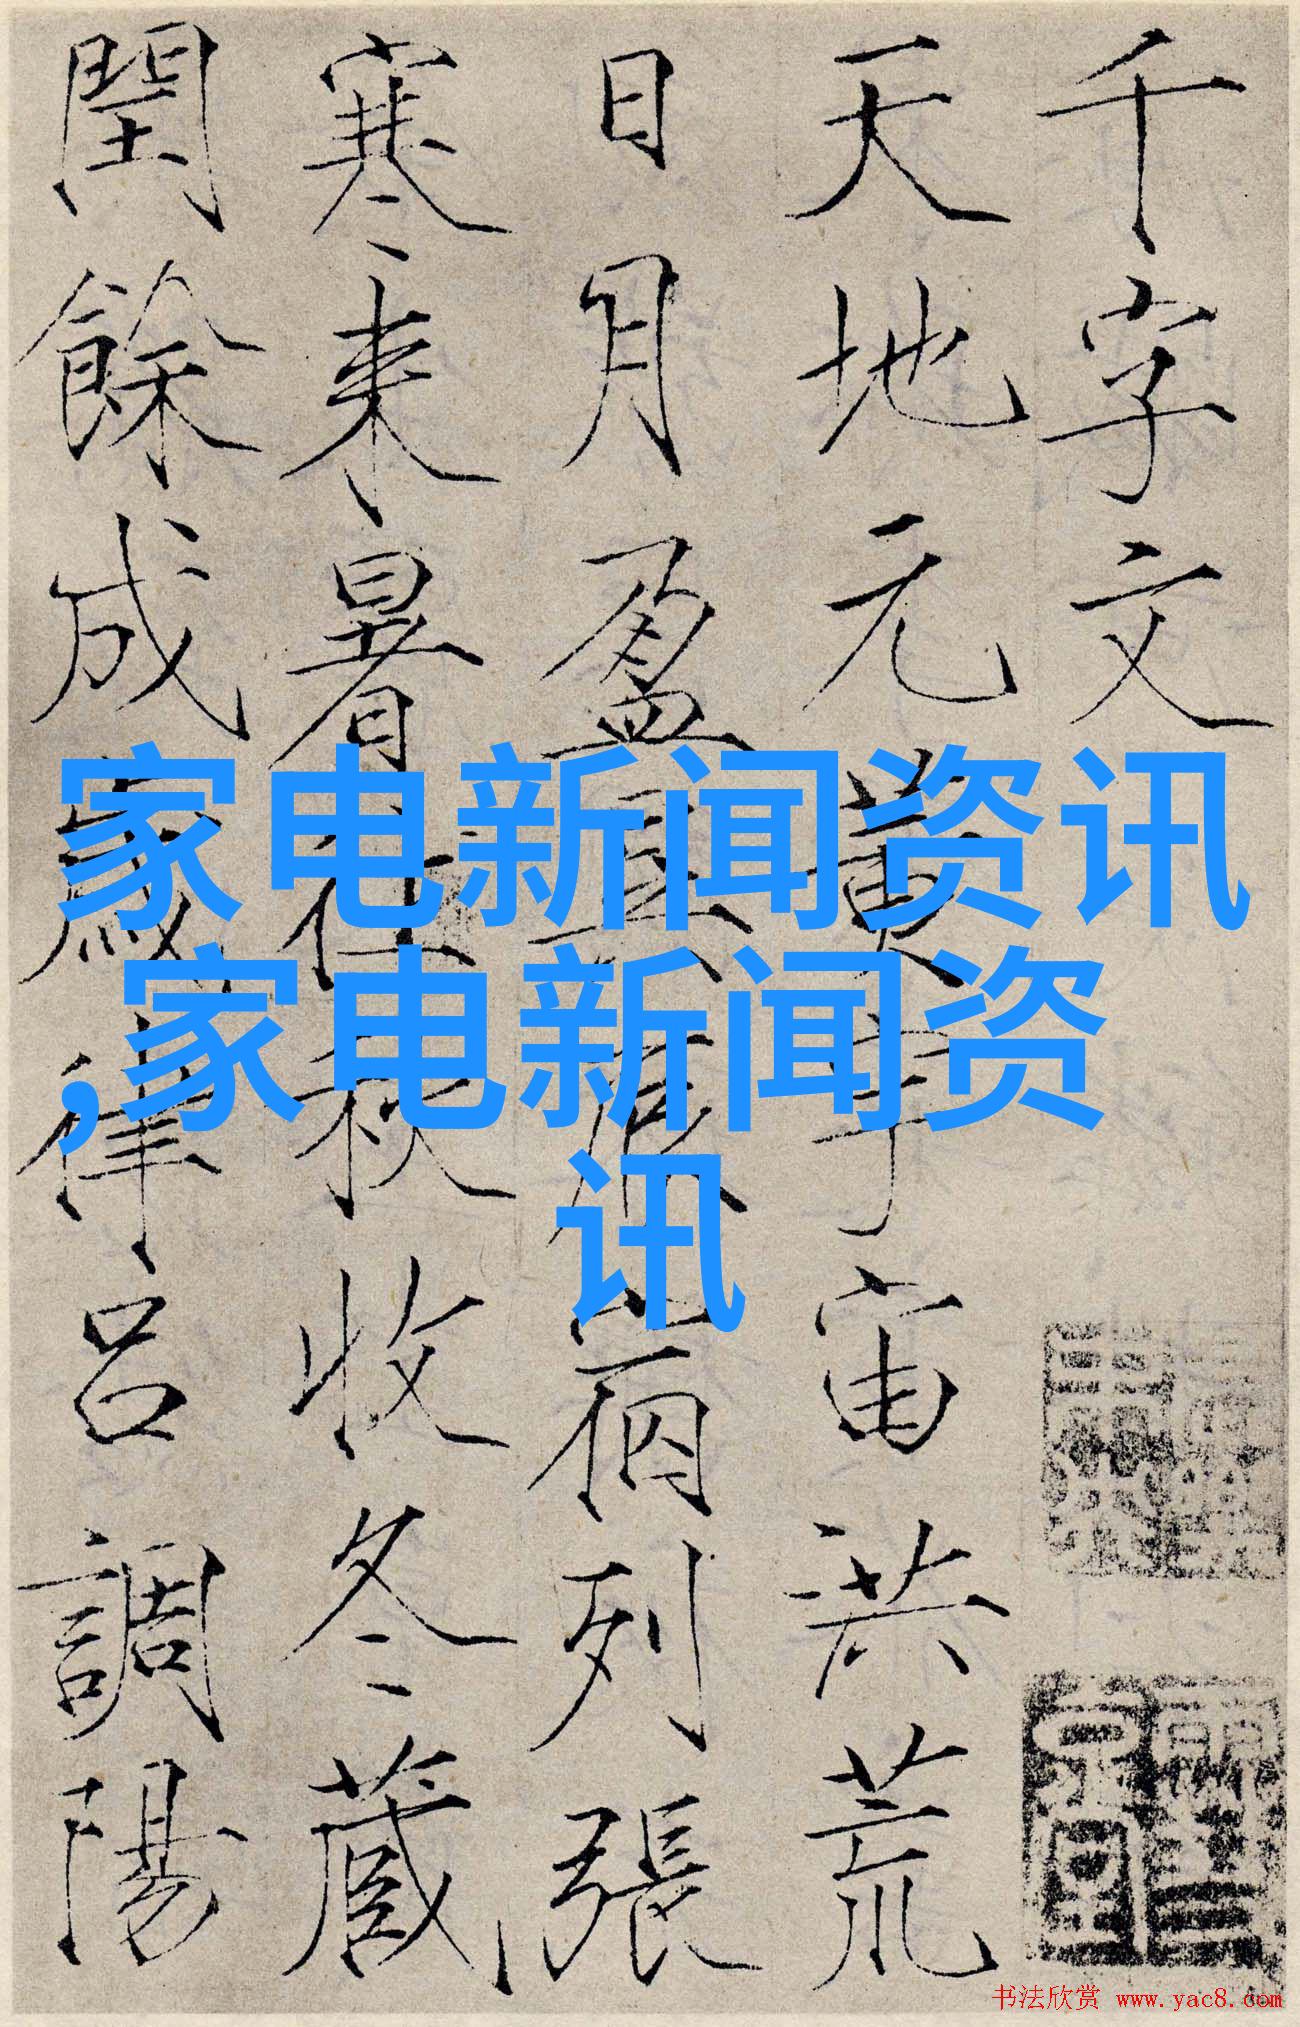 千字文
天地元黄宇宙洪荒
日月盈昃辰宿列張
寒来暑往秋收冬蔵
閏餘成歲律吕調陽
家电新闻资讯
,家电新闻资
讯
书法欣赏 www.yac8.com